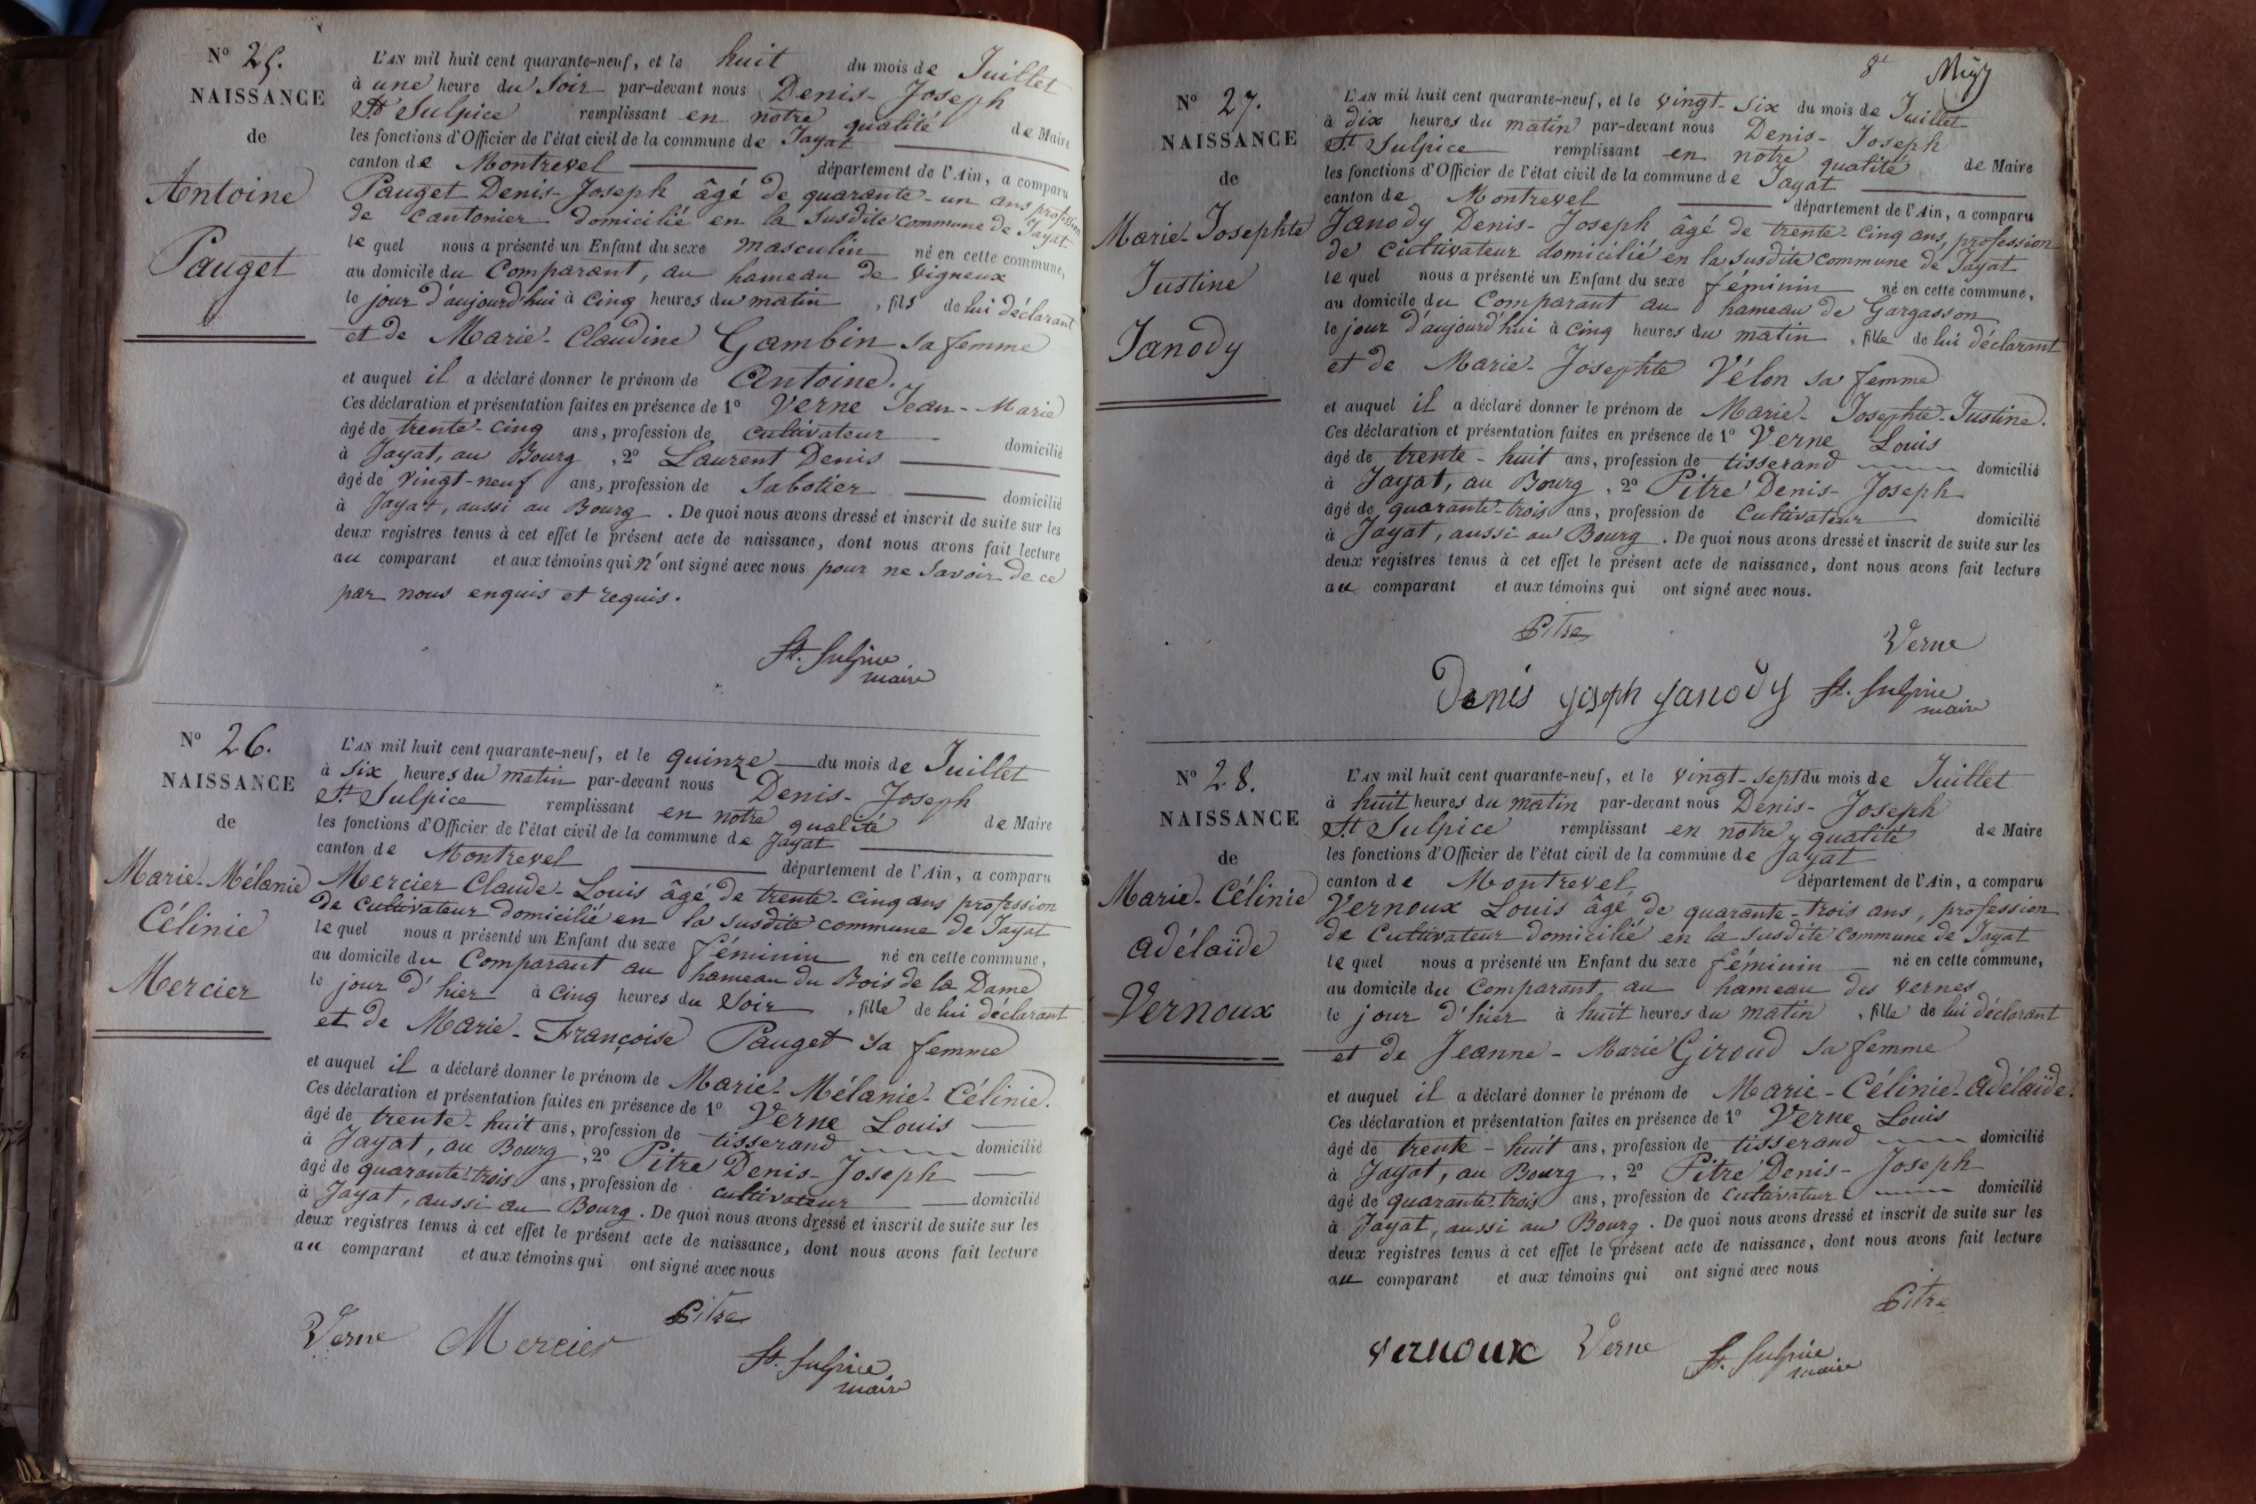 N° 25.
NAISSANCE
de
Antoine
Pauget
L'AN mil huit cent quarante-neuf, et le huit du mois de Juillet
à une heure du soir par-devant nous Denis-Joseph
St Sulpice remplissant en notre qualité de Maire
les fonctions d'Officier de l'état civil de la commune de Jayat
canton de Montrevel département de l'Ain, a comparu
Pauget Denis-Joseph âgé de quarante-un ans, profession
de cantonier domicilié en la susdite commune de Jayat
lequel nous a présenté un Enfant du sexe masculin né en cette commune,
au domicile du Comparant, au hameau de vigneux
le jour d'aujourd'hui à cinq heures du matin, fils de lui déclarant
et de Marie-Claudine Gambin sa femme
et auquel il a déclaré donner le prénom de Antoine.
Ces déclaration et présentation faites en présence de 1° Verne Jean-Marie
âgé de trente-cinq ans, profession de cultivateur domicilié
à Jayat, au Bourg, 2° Laurent Denis
âgé de vingt-neuf ans, profession de Sabotier domicilié
à Jayat, aussi au Bourg. De quoi nous avons dressé et inscrit de suite sur les
deux registres tenus à cet effet le présent acte de naissance, dont nous avons fait lecture
au comparant et aux témoins qui n'ont signé avec nous pour ne savoir de ce
par nous enquis et requis.
St. Sulpice
maire
N° 26.
NAISSANCE
de
Marie-Mélanie
Célinie
Mercier
L'AN mil huit cent quarante-neuf, et le quinze du mois de Juillet
à six heures du matin par-devant nous Denis-Joseph
St. Sulpice remplissant en notre qualité de Maire
les fonctions d'Officier de l'état civil de la commune de Jayat
canton de Montrevel département de l'Ain, a comparu
Mercier Claude-Louis âgé de trente-cinq ans profession
de cultivateur domicilié en la susdite commune de Jayat
lequel nous a présenté un Enfant du sexe féminin né en cette commune,
au domicile du Comparant au hameau du Bois de la Dame
le jour d'hier à cinq heures du soir, fille de lui déclarant
et de Marie-Françoise Pauget sa femme
et auquel il a déclaré donner le prénom de Marie-Mélanie-Célinie.
Ces déclaration et présentation faites en présence de 1° Verne Louis
âgé de trente-huit ans, profession de tisserand domicilié
à Jayat, au Bourg, 2° Pitre Denis-Joseph
âgé de quarante-trois ans, profession de cultivateur domicilié
à Jayat, aussi au Bourg. De quoi nous avons dressé et inscrit de suite sur les
deux registres tenus à cet effet le présent acte de naissance, dont nous avons fait lecture
au comparant et aux témoins qui ont signé avec nous
Verne Mercier Pitre
St. Sulpice
maire
8e
N° 27.
NAISSANCE
de
Marie-Josephte
Justine
Janody
L'AN mil huit cent quarante-neuf, et le vingt-six du mois de Juillet
à dix heures du matin par-devant nous Denis-Joseph
St Sulpice remplissant en notre qualité de Maire
les fonctions d'Officier de l'état civil de la commune de Jayat
canton de Montrevel département de l'Ain, a comparu
Janody Denis-Joseph âgé de trente-cinq ans, profession
de cultivateur domicilié en la susdite commune de Jayat
lequel nous a présenté un Enfant du sexe féminin né en cette commune,
au domicile du Comparant au hameau de Gargasson
le jour d'aujourd'hui à cinq heures du matin, fille de lui déclarant
et de Marie-Josephte Vélon sa femme
et auquel il a déclaré donner le prénom de Marie-Josephte-Justine.
Ces déclaration et présentation faites en présence de 1° Verne Louis
âgé de trente-huit ans, profession de tisserand domicilié
à Jayat, au Bourg, 2° Pitre Denis-Joseph
âgé de quarante-trois ans, profession de Cultivateur domicilié
à Jayat, aussi au Bourg. De quoi nous avons dressé et inscrit de suite sur les
deux registres tenus à cet effet le présent acte de naissance, dont nous avons fait lecture
au comparant et aux témoins qui ont signé avec nous.
Pitre Verne
Denis joseph janody St. Sulpice
maire
N° 28.
NAISSANCE
de
Marie-Célinie
adélaïde
Vernoux
L'AN mil huit cent quarante-neuf, et le vingt-sept du mois de Juillet
à huit heures du matin par-devant nous Denis-Joseph
St Sulpice remplissant en notre qualité de Maire
les fonctions d'Officier de l'état civil de la commune de Jayat
canton de Montrevel département de l'Ain, a comparu
Vernoux Louis âgé de quarante-trois ans, profession
de Cultivateur domicilié en la susdite commune de Jayat
lequel nous a présenté un Enfant du sexe féminin né en cette commune,
au domicile du Comparant, au hameau des vernes
le jour d'hier à huit heures du matin, fille de lui déclarant
et de Jeanne-Marie Giroud sa femme
et auquel il a déclaré donner le prénom de Marie-Célinie-adélaïde.
Ces déclaration et présentation faites en présence de 1° Verne Louis
âgé de trente-huit ans, profession de tisserand domicilié
à Jayat, au Bourg, 2° Pitre Denis-Joseph
âgé de quarante-trois ans, profession de cultivateur domicilié
à Jayat, aussi au Bourg. De quoi nous avons dressé et inscrit de suite sur les
deux registres tenus à cet effet le présent acte de naissance, dont nous avons fait lecture
au comparant et aux témoins qui ont signé avec nous
Pitre
vernoux Verne St. Sulpice
maire